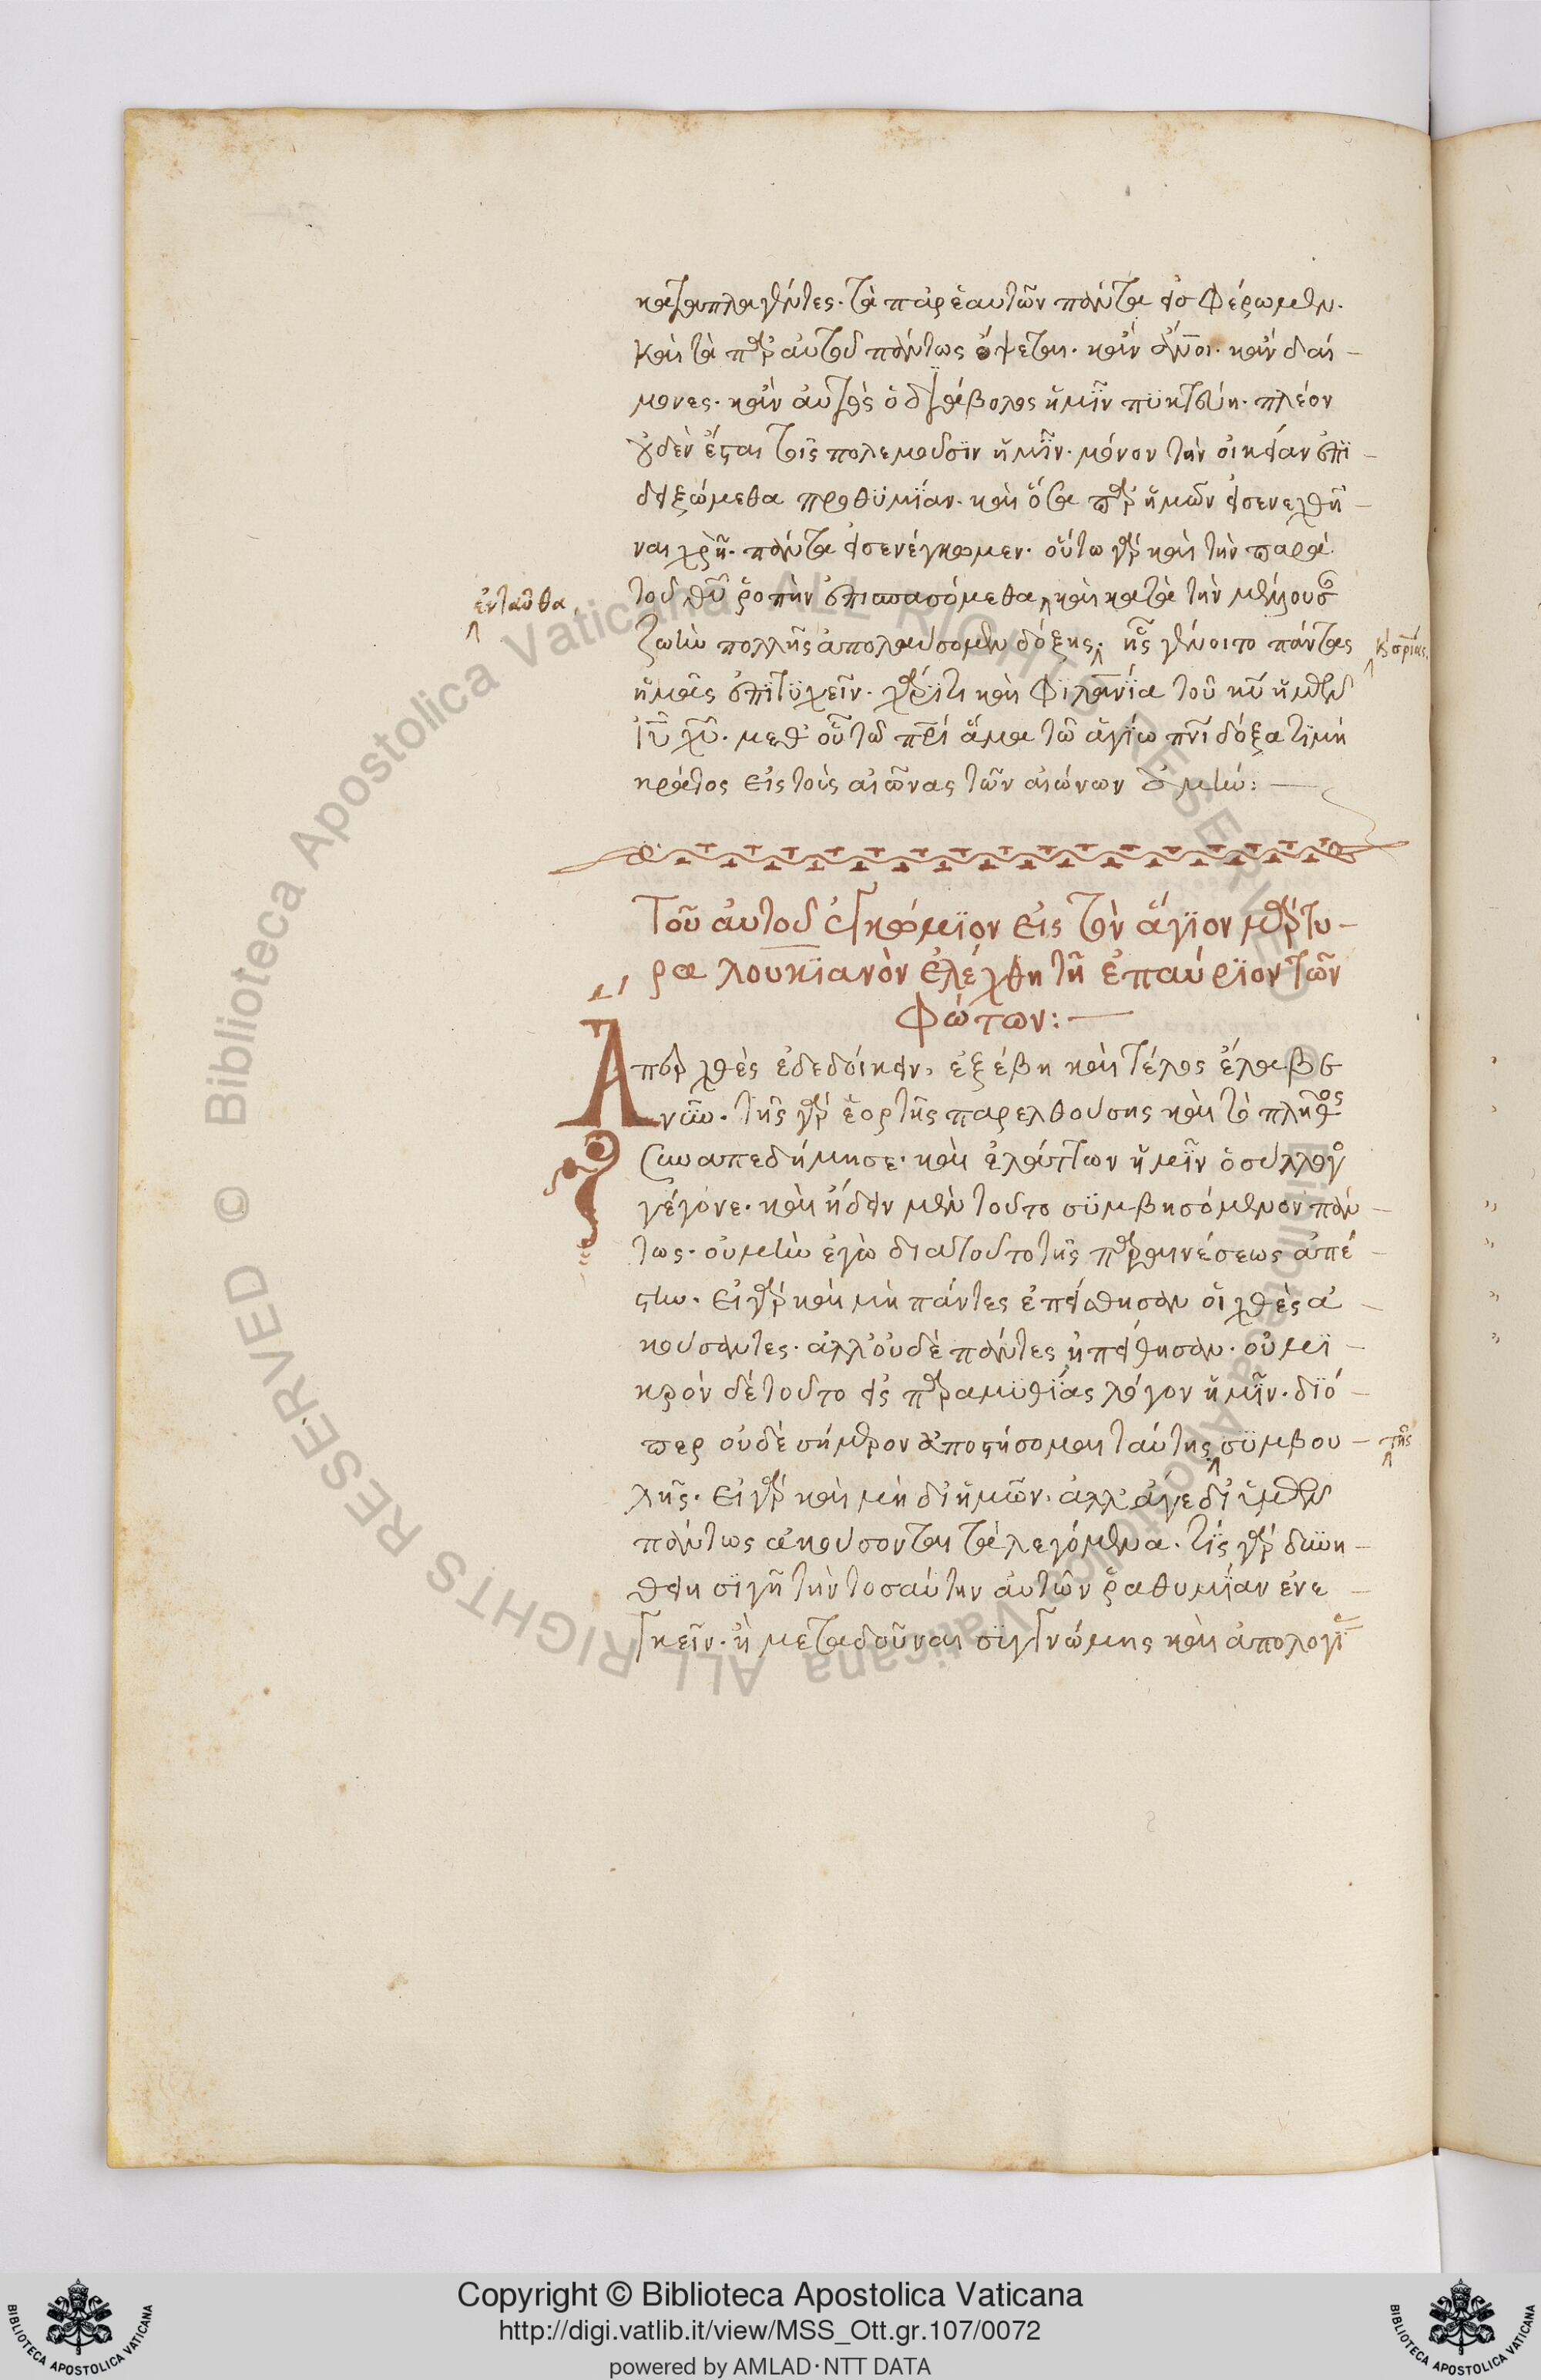 καταπλαγέντες· τὰ παρ' ἑαυτῶν πάντα εἰσφέρωμεν.
καὶ τὰ παρ' αὐτοῦ πάντως ἕψεται· κἂν ἄνοι· κἂν δαί-
μονες· κἂν αὐτὸς ὁ διάβολος ἡμῖν πϋκτεύη· πλέον
οὐδὲν ἔσται τοῖς πολεμοῦσϊν ἡμῖν· μόνον τὴν οἰκείαν ἐπϊ-
δειξώμεθα προθϋμϊαν· καὶ ὅσα παρ' ἡμῶν εἰσενεχθῆ-
ναι χρὴ· πάντα εἰσενέγκωμεν· οὕτω γὰρ καὶ τὴν παρὰ
ἐνταῦθα
τοῦ θῦ ῥοπὴν ἐπισπασόμεθα, καὶ κατὰ τὴν μέλλουσαν
ζωὴν πολλῆς ἀπολαύσομεν δόξης· ἧς γένοιτο πάντας
κ σρίας
ἡμᾶς ἐπϊτϋχεῖν· χάρϊτι καὶ φϊλανϊα τοῦ κῦ ἡμῶν
ἰῦ χῦ· μεθ' οὗ τῶ πρὶ ἅμα τῶ ἁγίω πνϊ δόξα τϊμὴ
κράτος εἰς τοὺς αἰῶνας τῶν αἰώνων ἀμήν:—
Τοῦ αὐτοῦ ἐγκώμϊον εἰς τὸν ἅγϊον μάρτυ-
ρα λουκϊανὸν ἐλέχθη τῆ ἐπαύρϊον τῶν
φώτων:—
Ἅπερ χθὲς ἐδεδοίκειν, ἐξέβη καὶ τέλος ἔλαβε
νῦν· τῆς γὰρ ἑορτῆς παρελθούσης καὶ τὸ πλῆθος
συναπεδήμησε· καὶ ἐλάττων ἡμῖν ὁ σύλλογος
γέγονε· καὶ ἤδειν μὲν τοῦτο σϋμβησόμενον πάν-
τως· οὐ μὴν ἐγὼ διατοῦτο τῆς παραινέσεως ἀπέ-
στην· εἰ γὰρ καὶ μὴ πάντες ἐπείσθησαν οἱ χθὲς ἀ-
κούσαντες· ἀλλ' οὐδὲ πάντες ἠπείθησαν· οὐ μϊ-
κρὸν δὲ τοῦτο εἰς παραμϋθϊας λόγον ἡμῖν· διό-
περ οὐδὲ σήμερον ἀποστήσομαι ταύτης σϋμβου-
τῆς
λῆς· εἰ γὰρ καὶ μὴ δι' ἡμῶν· ἀλλ' ἄγε δι' ὑμῶν
πάντως ἀκούσονται τὰ λεγόμενα· τίς γὰρ δυνη-
θείη σϊγῆ τὴν τοσαύτην αὐτῶν ῥαθυμίαν ἐνε-
γκεῖν· ἢ μεταδοῦναι σϋγγνώμης καὶ ἀπολογί
Copyright © Biblioteca Apostolica Vaticana
http://digi.vatlib.it/view/MSS_Ott.gr.107/0072
powered by AMLAD·NTT DATA
BIBLIOTECA APOSTOLICA VATICANA
BIBLIOTECA APOSTOLICA VATICANA
Biblioteca Apostolica Vaticana ALL RIGHTS RESERVED ©
Biblioteca Apostolica Vaticana ALL RIGHTS RESERVED ©